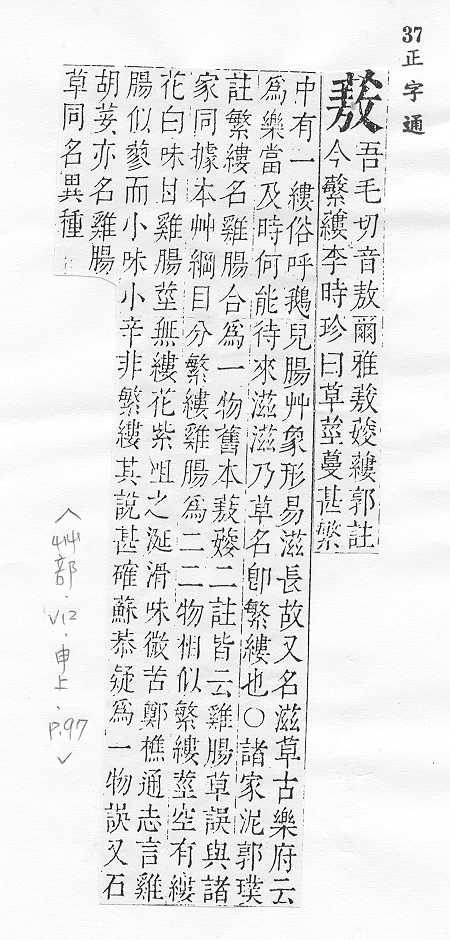 37正字通
蔜
吾毛切音敖爾雅蔜䕅蔞郭註
今蘩蔞李時珍曰草莖蔓甚繁
中有一縷俗呼鵝兒腸艸象形易滋長故又名滋草古樂府云
爲樂當及時何能待來滋滋乃草名卽繁縷也○諸家泥郭璞
註繁縷名雞腸合爲一物舊本蔜䕅二註皆云雞腸草誤與諸
家同據本艸綱目分繁縷雞腸爲二二物相似繁縷莖空有縷
花白味甘雞腸莖無縷花紫咀之涎滑味微苦鄭樵通志言雞
腸似蓼而小味小辛非繁縷其說甚確蘇恭疑爲一物誤又石
胡荽亦名雞腸
草同名異種
艸部.V12.申上.p.97